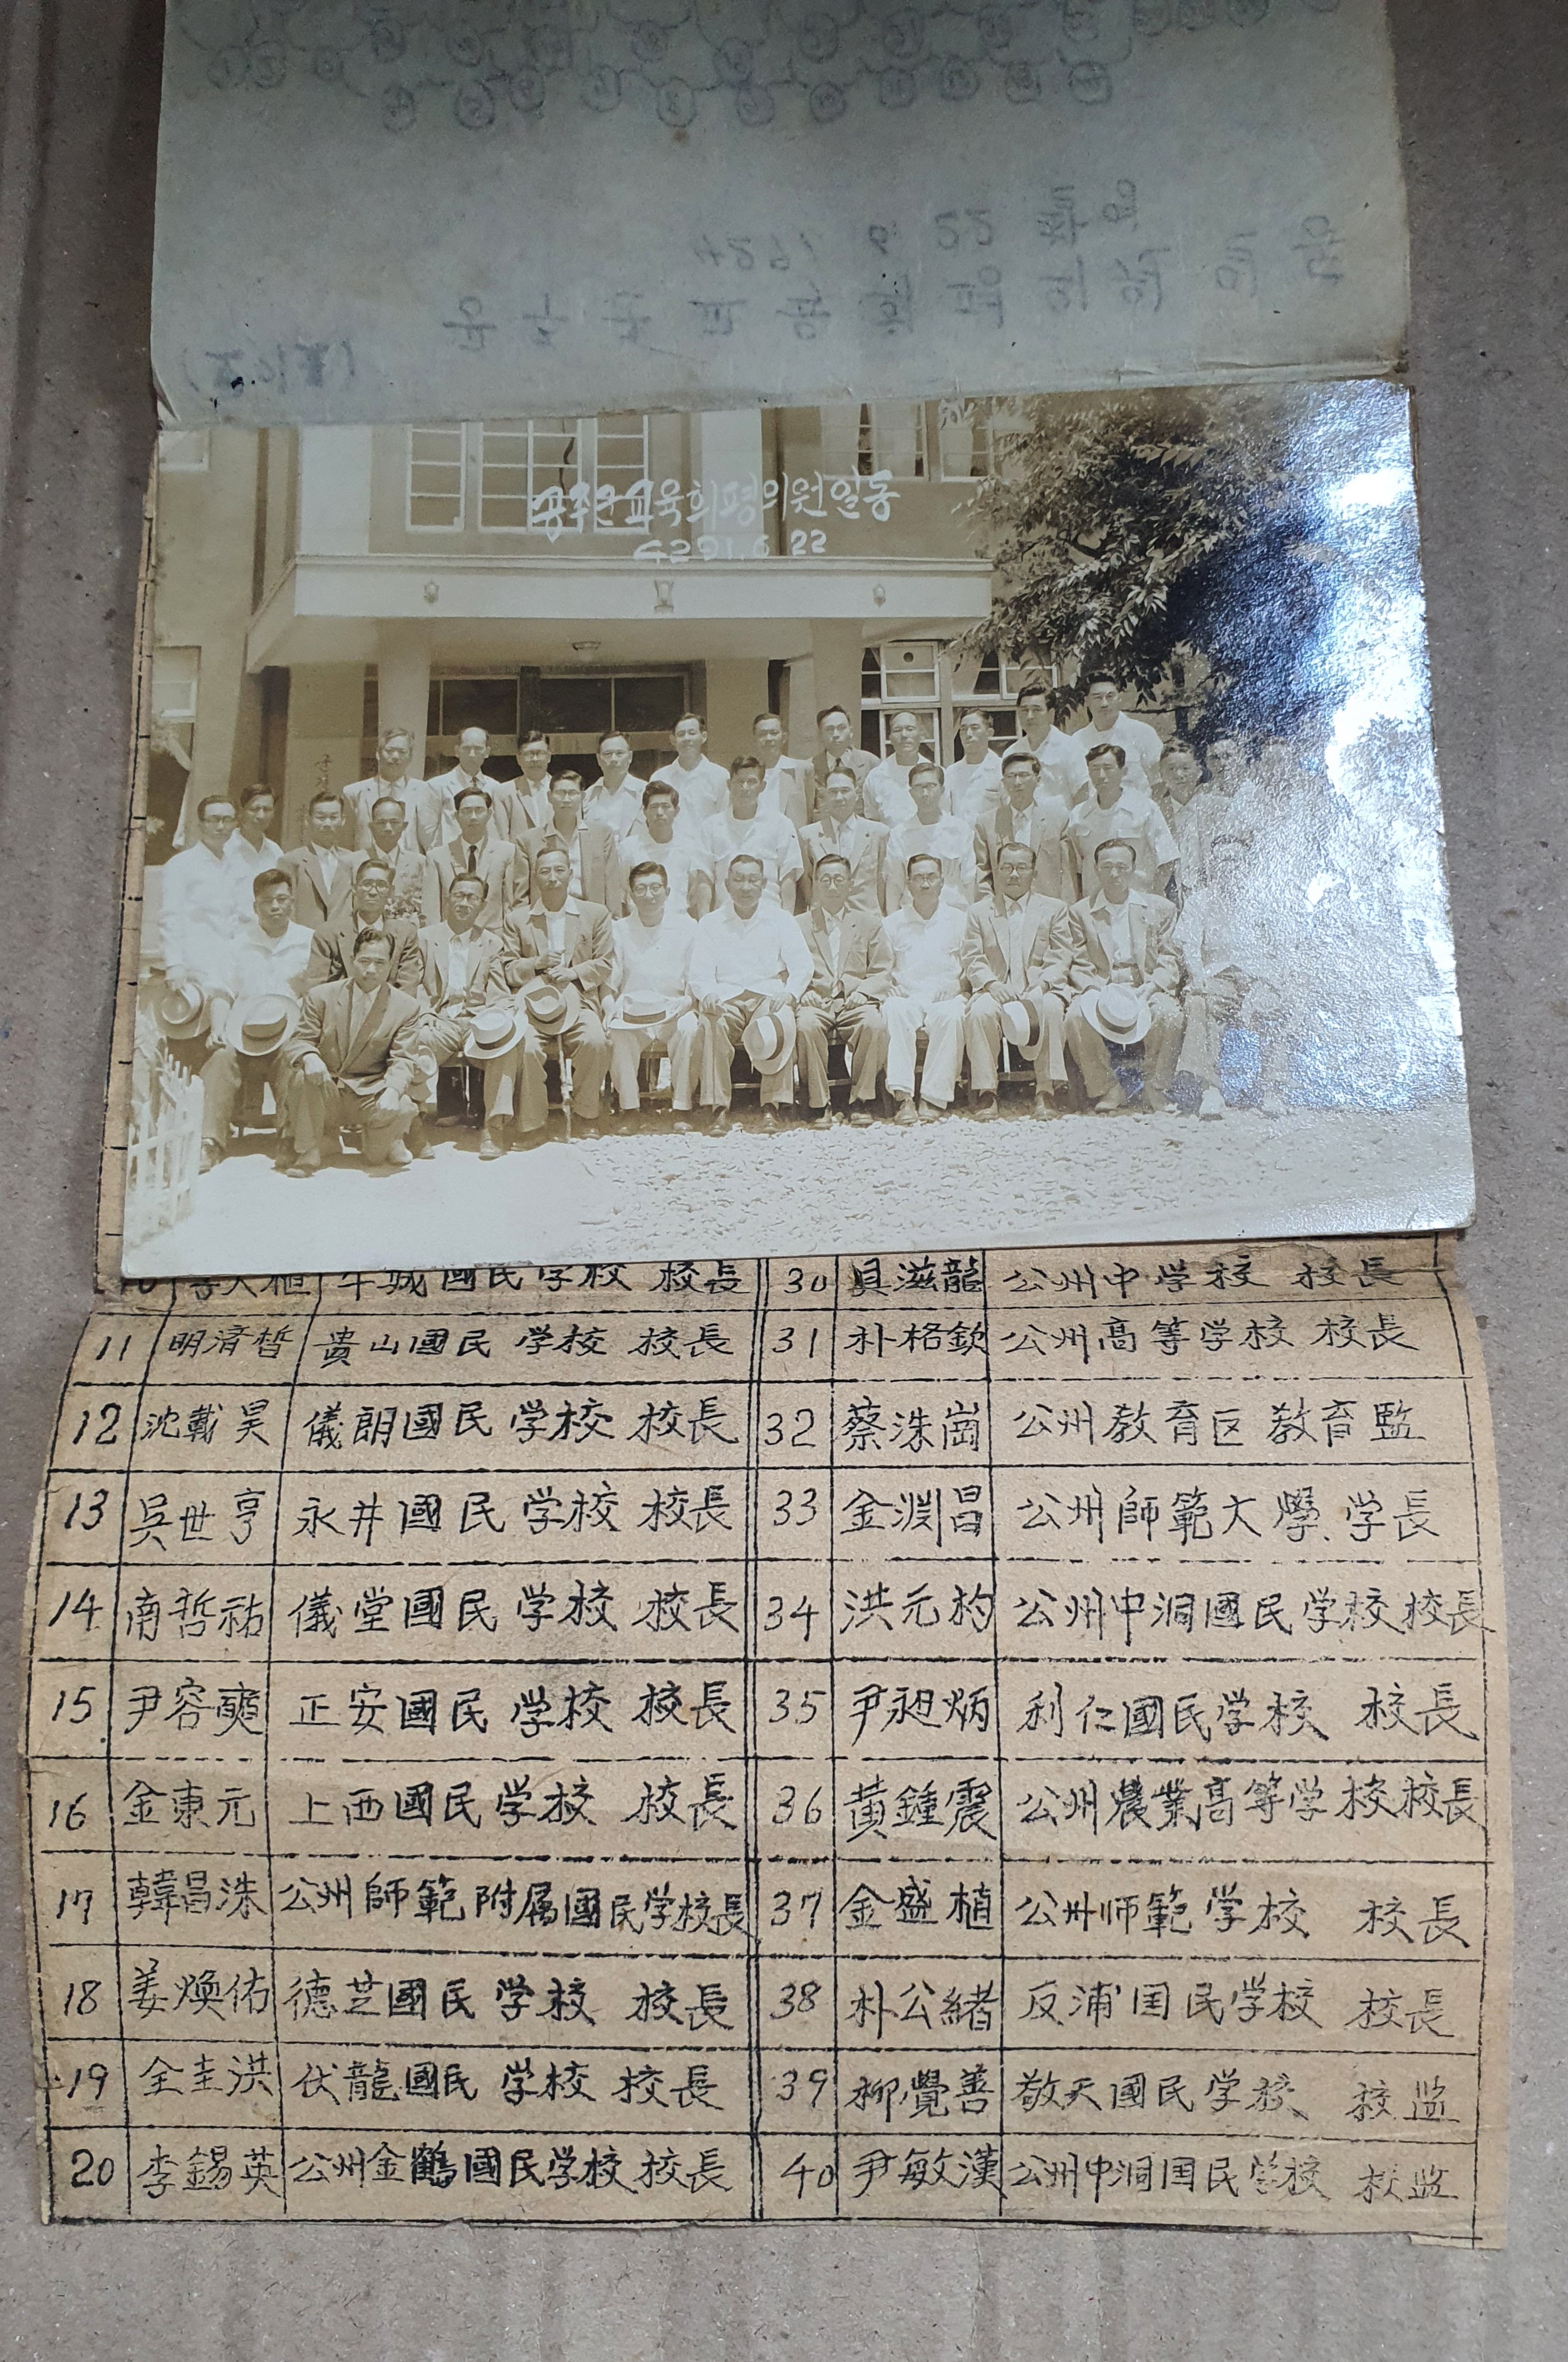 공주군교육회평의원일동
4291.6.22
國民学校 校長 30 貝滋龍 公州中学校 校長
11 明済哲 貴山國民学校 校長 31 朴格欽 公州高等学校 校長
12 沈載昊 儀朗國民学校 校長 32 蔡洙崗 公州教育区 教育監
13 吳世亨 永井國民学校 校長 33 金渊昌 公州師範大學 学長
14 南哲祐 儀堂國民学校 校長 34 洪元杓 公州中洞國民学校 校長
15 尹容奭 正安國民学校 校長 35 尹昶炳 利仁國民学校 校長
16 金東元 上西國民学校 校長 36 黃鍾震 公州農業高等学校 校長
17 韓昌洙 公州師範附属國民学校長 37 金盛植 公州师範学校 校長
18 姜煥佑 德芝國民学校 校長 38 朴公緖 反浦国民学校 校長
19 全圭洪 伏龍國民学校 校長 39 柳覺善 敬天國民学校 校监
20 李錫英 公州金鶴國民学校 校長 40 尹敏漢 公州中洞国民学校 校监